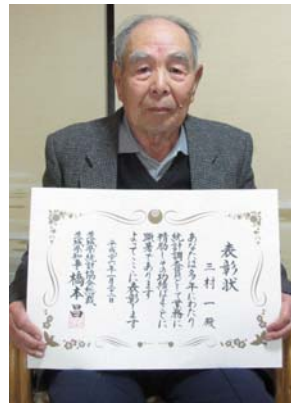 表彰状
三村一殿
あなたは多年にわたり
統計調査員として業務に
精励しその功績はまことに
顕著であります
よってここに表彰します
平成二十六年一月二十八日
茨城県統計協会総裁
茨城県知事 橋本昌